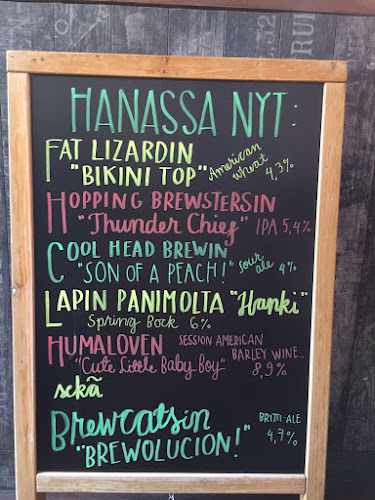 HANASSA NYT:
FAT LIZARDIN
"BIKINI TOP" American wheat 4,3%
HOPPING BREWSTERSIN
"Thunder Chief" IPA 5,4%
COOL HEAD BREWIN
"SON OF A PEACH!" sour ale 4%
LAPIN PANIMOLTA "Hanki"
Spring Bock 6%
HUMALOVEN SESSION AMERICAN
BARLEY WINE..
"Cute Little Baby Boy" 8,9%
sckä
Brewcatsin BRITTI-ALE
"BREWOLUCION!" 4,7%